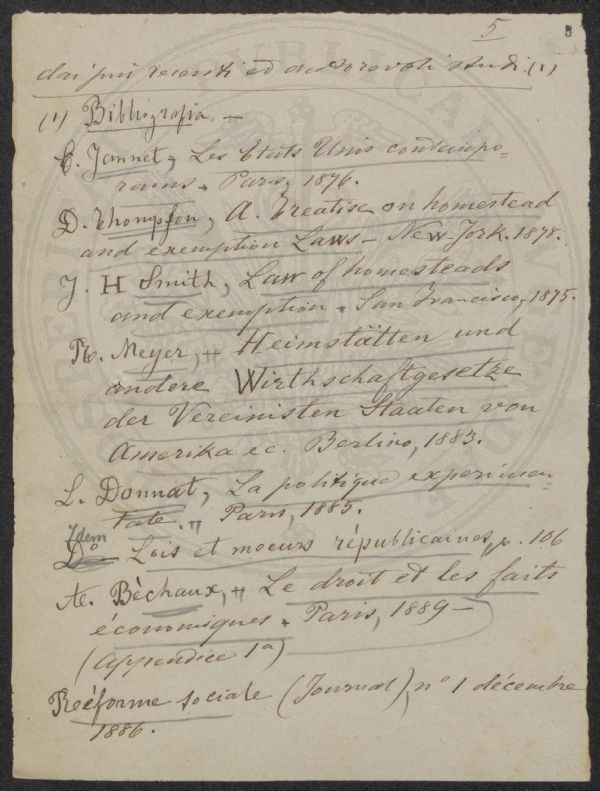 5
dai più recenti ed autorevoli studi. (1)
(1) Bibliografia. —
C. Jannet, Les Etats Unis contempo-
rains. Paris, 1876.
D. Thompson, A. Treatise on homestead
and exemption Laws — New-York. 1878.
J. H Smith, Law of homesteads
and exemption. San Francisco, 1875.
R. Meyer, Heimstätten und
andere Wirthschaftgesetze
der Vereinisten Staaten von
Amerika ec. Berlino, 1883.
L. Donnat, La politique experimen-
tale. Paris, 1885.
Idem
Do Lois et moeurs républicaines, p. 106
A. Bèchaux, Le droit et les faits
économiques. Paris, 1889 —
(appendice 1a)
Reéforme sociale (Journal), no 1 décembre
1886.